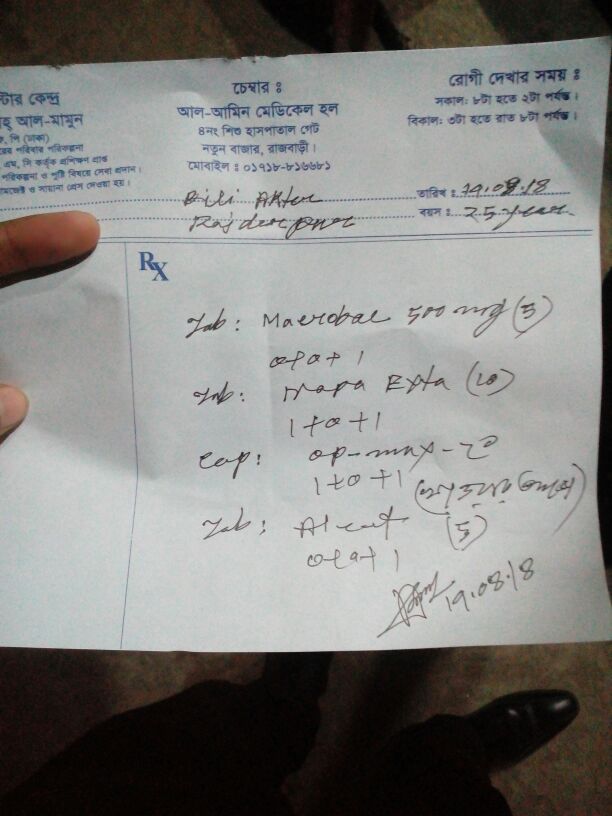 টার কেন্দ্র
হ্ আল-মামুন
পি (ঢাকা)
রের পরিবার পরিকল্পনা
এম, সি কর্তৃক প্রশিক্ষণ প্রাপ্ত
পরিকল্পনা ও পুষ্টি বিষয়ে সেবা প্রদান।
ও সায়ানা প্রেস দেওয়া হয়।
চেম্বার ঃ
আল-আমিন মেডিকেল হল
৪নং শিশু হাসপাতাল গেট
নতুন বাজার, রাজবাড়ী।
মোবাইল : ০১৭১৮-৮১৬৬৮১
রোগী দেখার সময় ঃ
সকাল: ৮টা হতে ২টা পর্যন্ত।
বিকাল: ৩টা হতে রাত ৮টা পর্যন্ত।
Bili Akter
তারিখ : 19.08.18
বয়স : 25 year
Rx
Tab: Macrobac 500 mg (5)
0+0+1
Tab: Napa Exta (10)
1+0+1
Cap: op-max-20
1+0+1
Tab: (5)
0+0+1
19.08.18